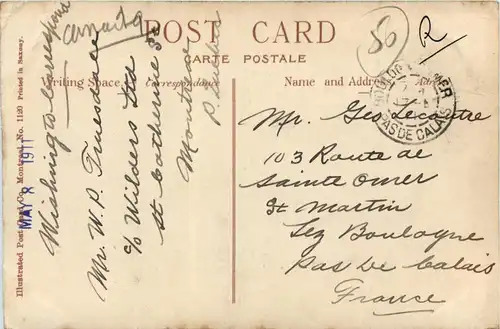 POST CARD
CARTE POSTALE
Writing Space
Correspondance
Name and Address
Illustrated Postal Card Co., Montreal No. 1120 Printed in Saxony.
MAY 8 1911
Wishing to Correspond
Mr. W. P. Truesdale
c/o Wilders Ltd
St Catherine St
Montreal
50
R
BOULOGNE MER
PAS DE CALAIS
Mr. Geo Lecoutre
103 Route de
Sainte Omer
St Martin
Lez Boulogne
Pas De Calais
France